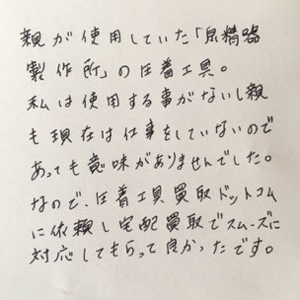 親が使用していた「泉精器
製作所」の圧着工具。
私は使用する事がないし親
も現在は仕事をしていないので
あっても意味がありませんでした。
なので、圧着工具買取ドットコム
に依頼し宅配買取でスムーズに
対応してもらって良かったです。